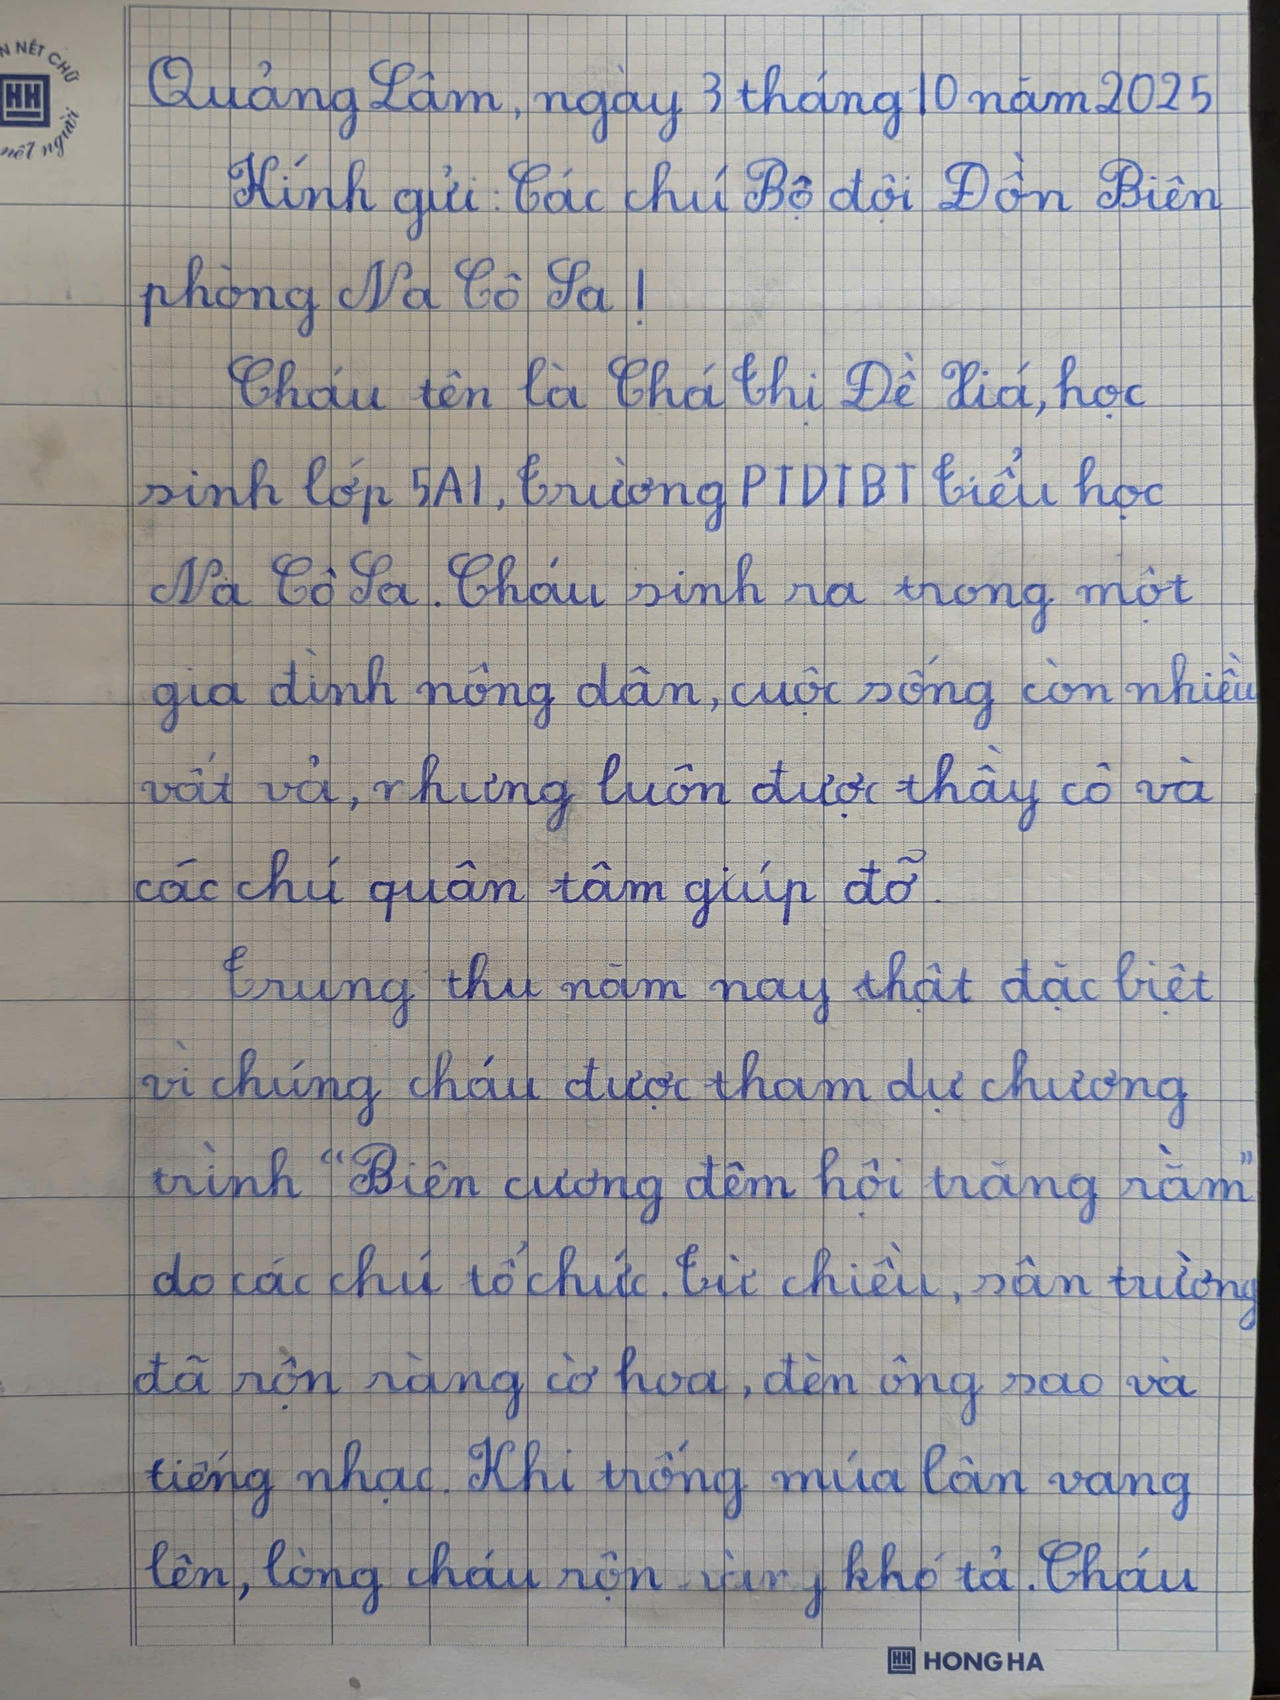 N NẾT CHỮ
HH
nết người
Quảng Lâm, ngày 3 tháng 10 năm 2025
Kính gửi: Các chú Bộ đội Đồn Biên
phòng Na Cô Sa!
Cháu tên là Thá Thị Dề Xiá, học
sinh lớp 5A1, trường PTDTBT tiểu học
Nà Cô Sa. Cháu sinh ra trong một
gia đình nông dân, cuộc sống còn nhiều
vất vả, nhưng luôn được thầy cô và
các chú quân tâm giúp đỡ.
Trung thu năm nay thật đặc biệt
vì chúng cháu được tham dự chương
trình "Biên cương đêm hội trăng rằm"
do các chú tổ chức. Từ chiều, sân trường
đã rộn ràng cờ hoa, đèn ông sao và
tiếng nhạc. Khi trống múa lân vang
lên, lòng cháu rộn ràng khó tả. Cháu
HH HONG HA